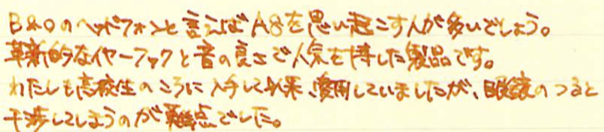 B&Oのヘッドフォンと言えばA8を思い起こす人が多いでしょう。
革新的なイヤーフックと音の良さで人気を博した製品です。
わたしも高校生のころに入手して以来、愛用していましたが、眼鏡のつると
干渉してしまうのが難点でした。